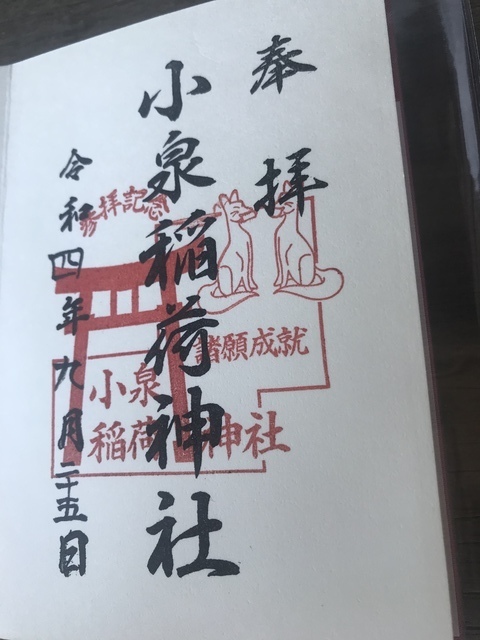 奉拝
小泉稲荷神社
令和四年九月二十五日
参拝記念
諸願成就
小泉
稲荷神社